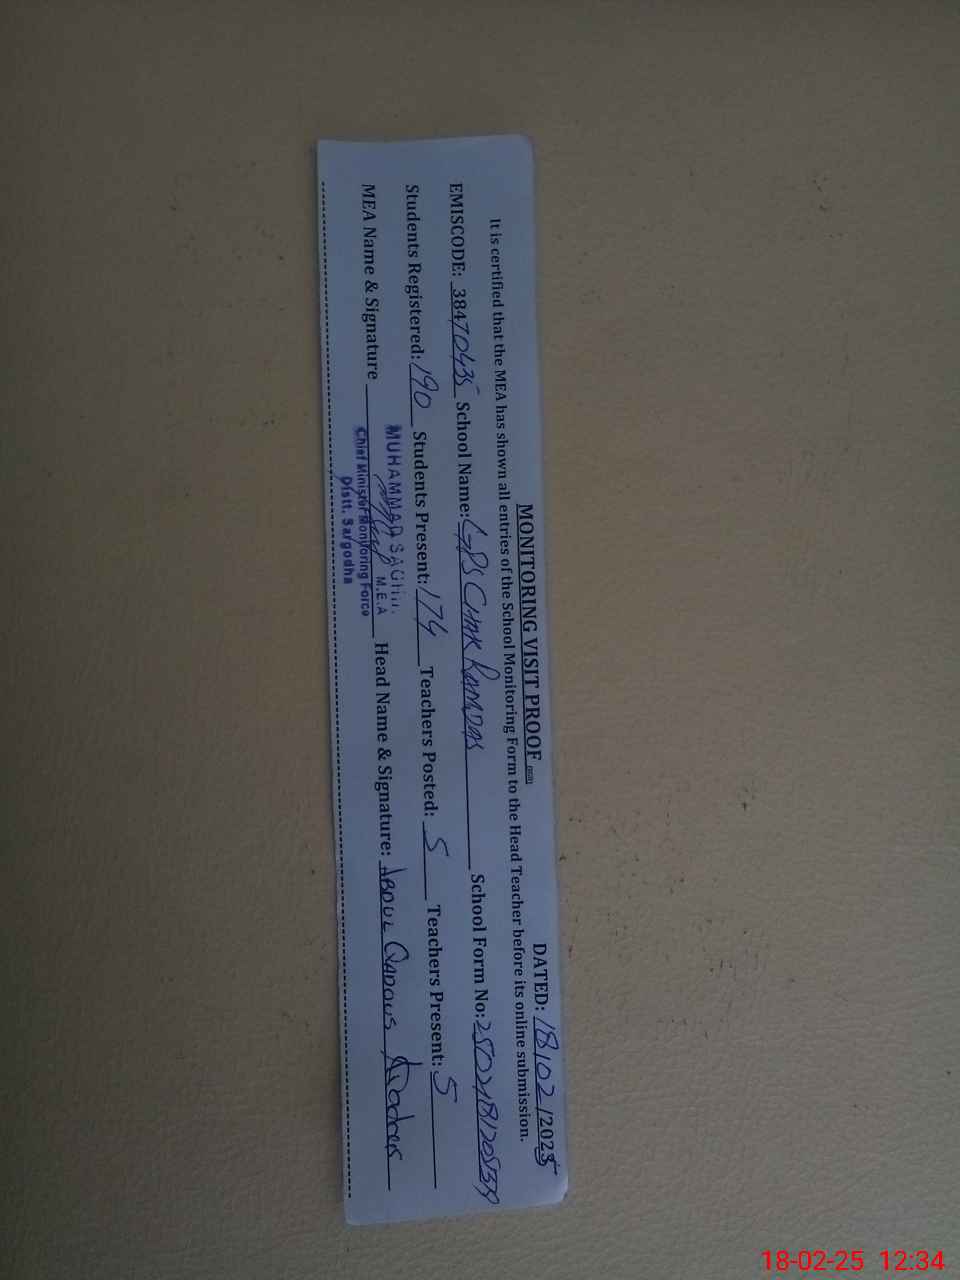 MONITORING VISIT PROOF
DATED: 18/02/2025
It is certified that the MEA has shown all entries of the School Monitoring Form to the Head Teacher before its online submission.
EMISCODE: 38470435 School Name: GPS CHAK RAMDAS School Form No:
Students Registered: 190 Students Present: 174 Teachers Posted: 5 Teachers Present: 5
MEA Name & Signature Head Name & Signature: ABDUL QADOUS
MUHAMMAD
M.E.A
Chief Minister Monitoring Force
Distt. Sargodha
18-02-25 12:34